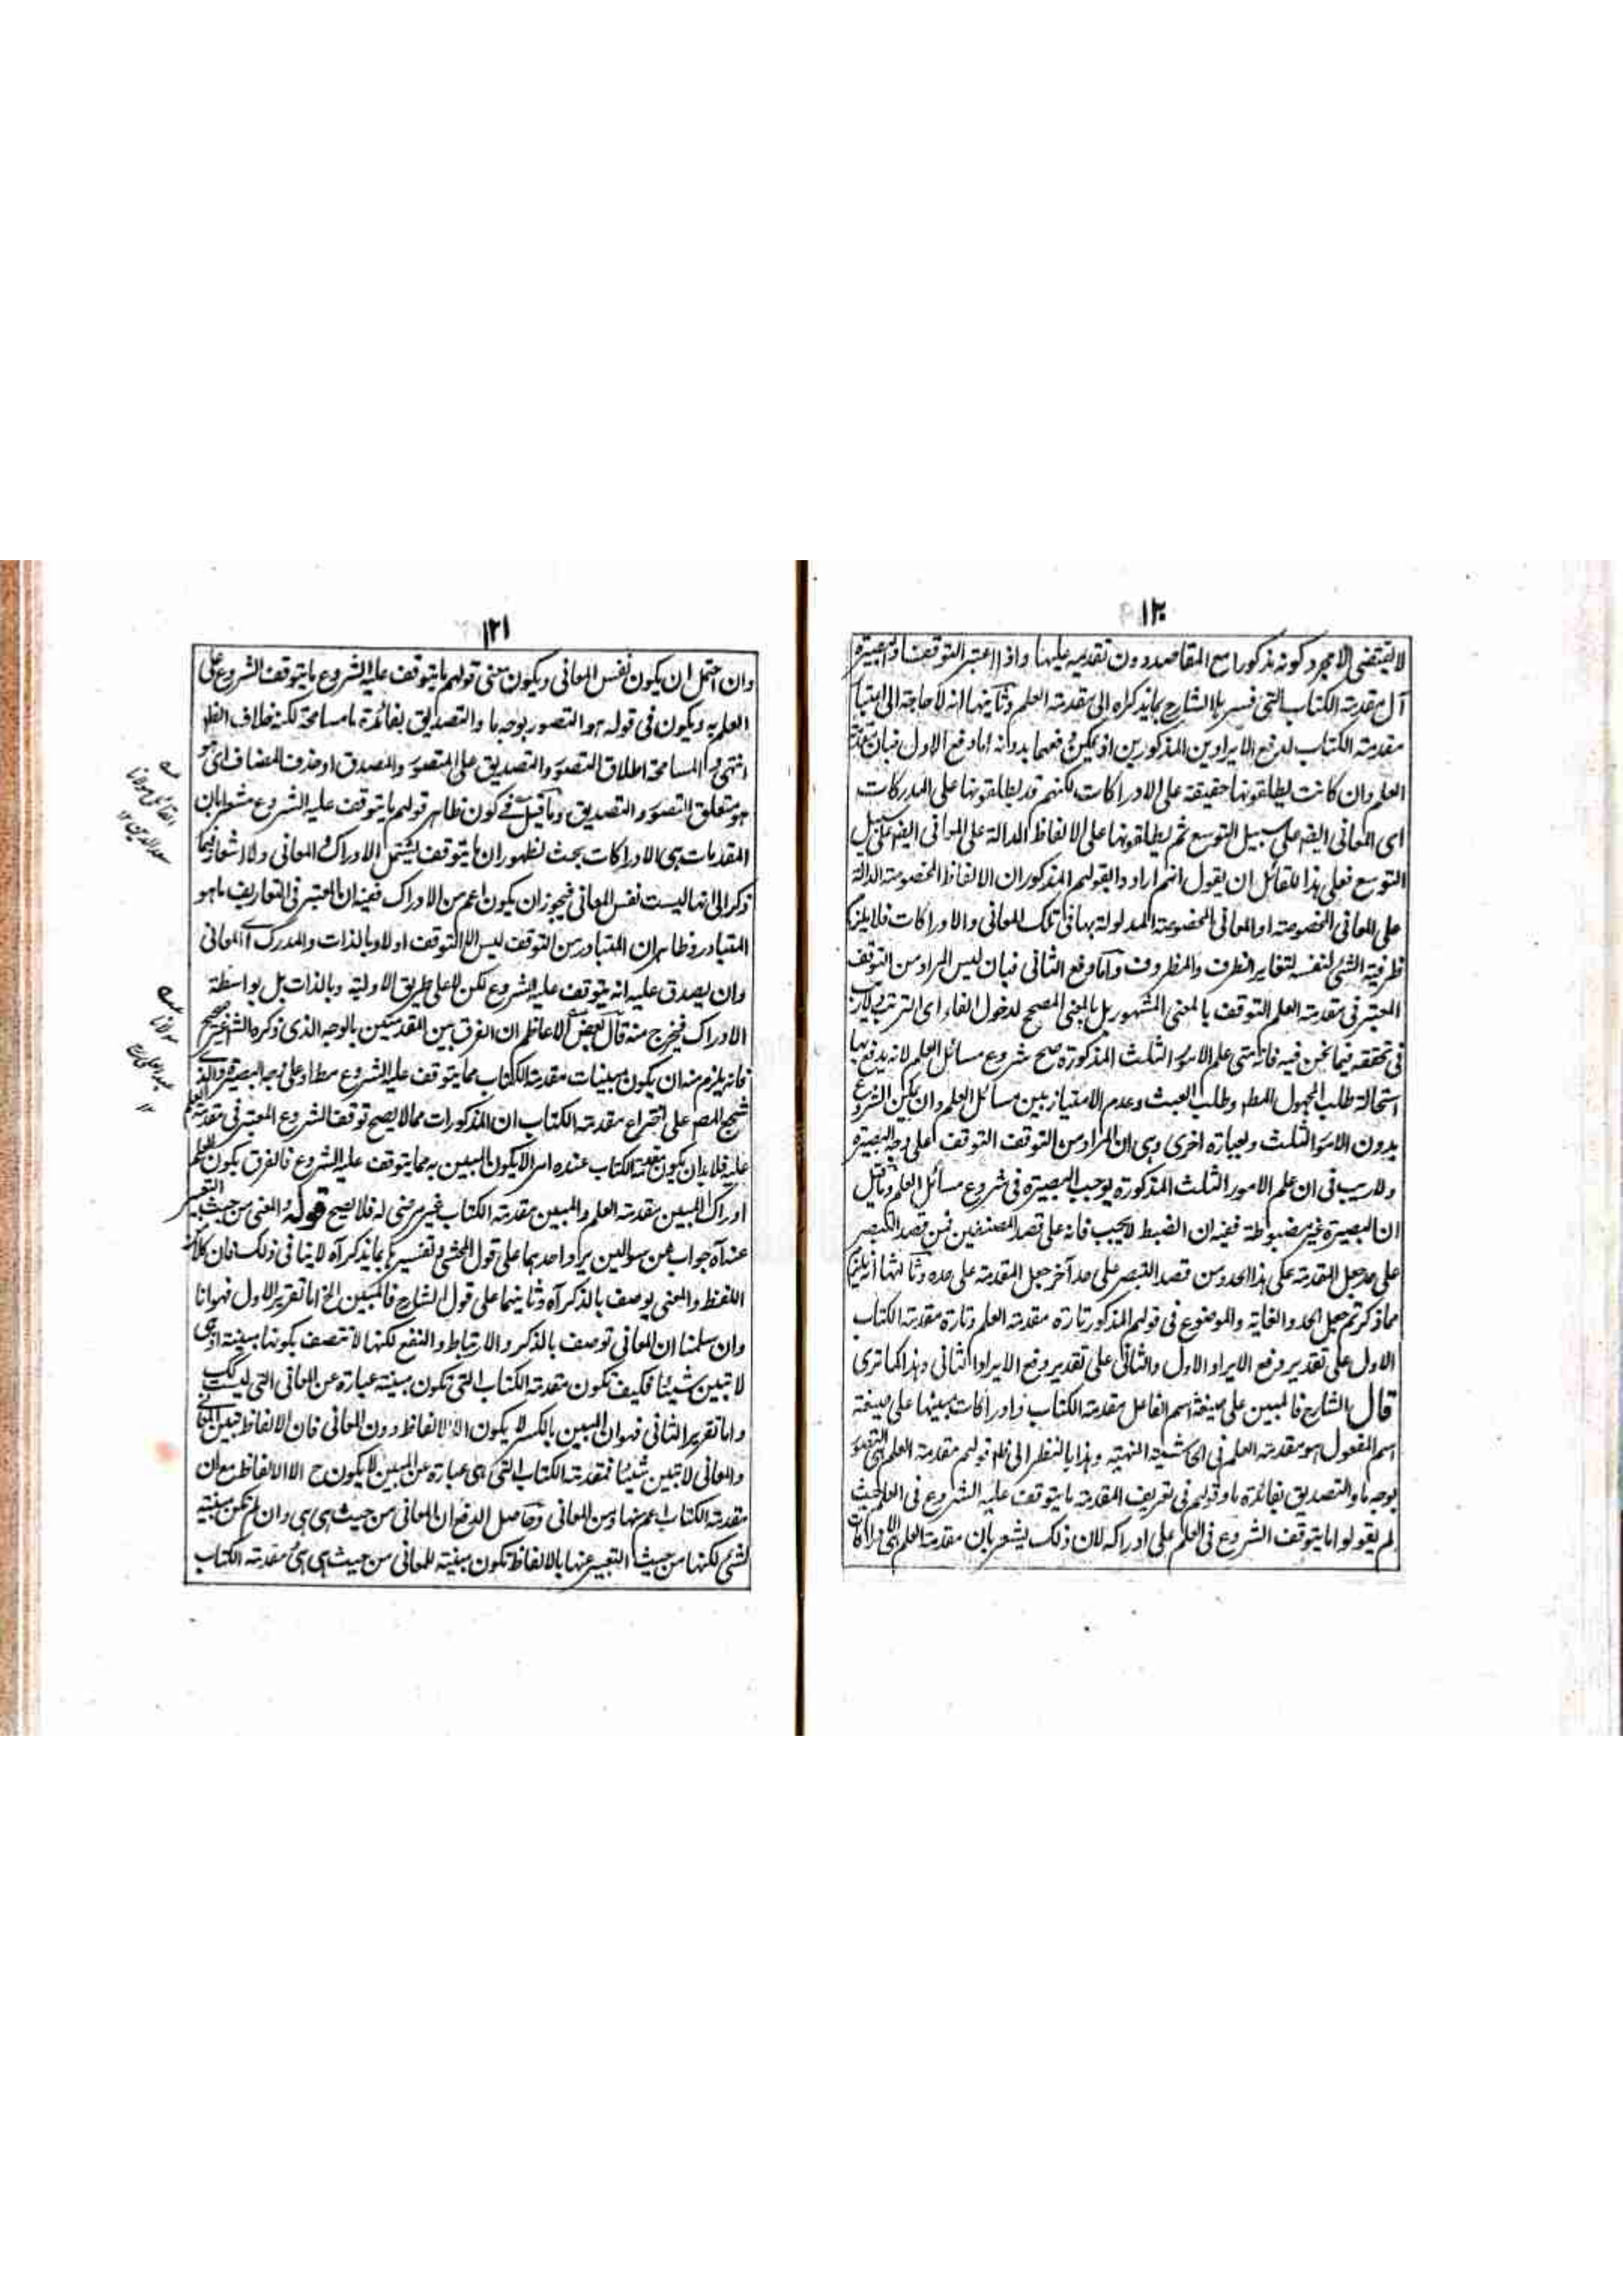 ١٢٠
لا يقتضى الا مجرد كونه مذكورا مع المقاصد دون تقديمه عليها واذا اعتبر التوقف البصيرة
آل مقدمة الكتاب التى فسر بها الشارح بما يذكر اه الى مقدمة العلم وثانيها انه لا حاجة الى
مقدمة الكتاب لدفع الايرادين المذكورين اذ يمكن دفعهما بدونه اما دفع الاول فبان مقدمة
العلم وان كانت يطلقونها حقيقة على الادراكات لكنهم قد يطلقونها على المدركات
اى المعانى ايضا على سبيل التوسع ثم يطلقونها على الالفاظ الدالة على المعانى ايضا على سبيل
التوسع فعلى هذا للقائل ان يقول انهم ارادوا بقولهم المذكور ان الالفاظ المخصوصة الدالة
على المعانى المخصوصة او المعانى المخصوصة المدلولة بها فى تلك المعانى والادراكات فلا يلزم
ظرفية الشئ لنفسه لتغاير الظرف والمظروف واما دفع الثانى فبان ليس المراد من التوقف
المعتبر فى مقدمة العلم التوقف بالمعنى المشهور بل بالمعنى المصحح لدخول الفاء اى الترتب ولا ريب
فى تحققه فيما نحن فيه فانه متى علم الامور الثلث المذكورة صح شروع مسائل العلم لانه يدفع بها
استحالة طلب المجهول المط وطلب العبث وعدم الامتياز بين مسائل العلم وان يمكن الشروع
بدون الامور الثلث وبعبارة اخرى وهى ان المراد من التوقف التوقف على وجه البصيرة
ولا ريب فى ان علم الامور الثلث المذكورة يوجب البصيرة فى شروع مسائل العلم وما قيل
ان البصيرة غير مضبوطة ففيه ان الضبط لا يجب فانه على قصد المصنفين فمن قصد التبصر
على حد جعل المقدمة على هذا الحد ومن قصد التبصر على حد آخر جعل المقدمة على حده وثالثها انه يلزم
مما ذكرتم جعل الحد والغاية والموضوع فى قولهم المذكور تارة مقدمة العلم وتارة مقدمة الكتاب
الاول على تقدير دفع الايراد الاول والثانى على تقدير دفع الايراد الثانى وهذا كما ترى
قال الشارح فالمبين على صيغة اسم الفاعل مقدمة الكتاب وادراكات مبينها على صيغة
اسم المفعول هو مقدمة العلم فى الحاشية المنهية وهذا بالنظر الى ظاهر قولهم مقدمة العلم هى التصور
بوجه ما والتصديق بفائدة ما وقولهم فى تعريف المقدمة ما يتوقف عليه الشروع فى العلم حيث
لم يقولوا ما يتوقف الشروع فى العلم على ادراكه لان ذلك يشعر بان مقدمة العلم هى الادراكات
١٢١
وان احتمل ان يكون نفس المعانى ويكون معنى قولهم ما يتوقف عليه الشروع ما يتوقف الشروع على
العلم به ويكون فى قوله هو التصور بوجه ما والتصديق بفائدة ما مسامحة لكنه خلاف الظاهر
انتهى والمسامحة اطلاق التصور والتصديق على المتصور والمصدق او حذف المضاف اى هو
هو متعلق التصور والتصديق وما قيل فى كون ظاهر قولهم ما يتوقف عليه الشروع مشعرا بان
المقدمات هى الادراكات بحث لظهور ان ما يتوقف يشتمل الادراك والمعانى ولا اشعار فيما
ذكر الى انها ليست نفس المعانى فيجوز ان يكون اعم من الادراك ففيه ان المعتبر فى التعاريف ما هو
المتبادر وظاهر ان المتبادر من التوقف ليس الا التوقف اولا وبالذات والمدرك اى المعانى
وان يصدق عليه انه يتوقف عليه الشروع لكن لا على طريق الاولية وبالذات بل بواسطة
الادراك فيخرج منه قال بعض الاعاظم ان الفرق بين المقدمتين بالوجه الذى ذكره الشارح غير صحيح
فانه يلزم منه ان يكون مبينات مقدمة الكتاب مما يتوقف عليه الشروع مطلقا او على وجه البصيرة والذى
شجع المص على اختراع مقدمة الكتاب ان المذكورات مما لا يصح توقف الشروع المعتبر فى مقدمة العلم
عليه فلا بد ان يكون مقدمة الكتاب عنده امرا لا يكون المبين به مما يتوقف عليه الشروع فالفرق بكون العلم
ادراك المبين مقدمة العلم والمبين مقدمة الكتاب غير مرضى له فلا يصح قوله والمعنى من حيث التعبير
عنه اه جواب عن سوالين يرد احدهما على قول المحشى وتفسيرها بما يذكر اه لا ينافى ذلك فان كلا من
اللفظ والمعنى يوصف بالذكر اه وثانيهما على قول الشارح فالمبين الخ اما تقرير الاول فهو انا
وان سلمنا ان المعانى توصف بالذكر والارتباط والنفع لكنها لا تتصف بكونها مبينة اذ هى
لا تبين شيئا فكيف تكون مقدمة الكتاب التى تكون مبينة عبارة عن المعانى التى ليست كك
واما تقرير الثانى فهو ان المبين بالكسر لا يكون الا الالفاظ دون المعانى فان الالفاظ تبين المعانى
والمعانى لا تبين شيئا فمقدمة الكتاب التى هى عبارة عن المبين لا يكون ح الا الالفاظ مع ان
مقدمة الكتاب اعم منها ومن المعانى وحاصل الدفع ان المعانى من حيث هى هى وان لم تكن مبينة
لشئ لكنها من حيث التعبير عنها بالالفاظ تكون مبينة للمعانى من حيث هى هى مقدمة الكتاب
القائل مولانا
سعد الدين ١٢
مولانا
عبد العلى
١٢